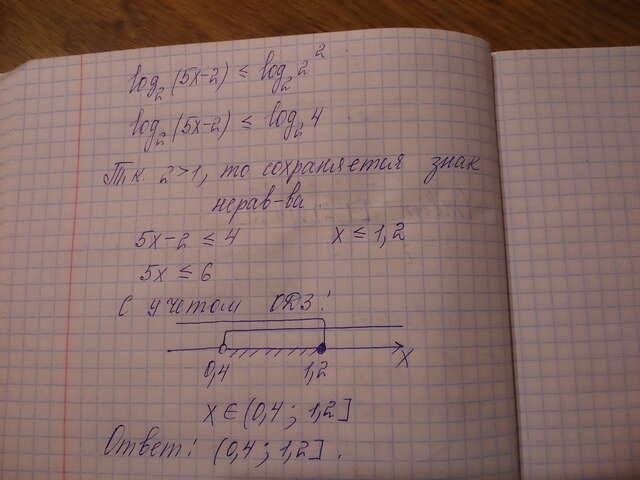 log₂(5x-2) ≤ log₂2²
log₂(5x-2) ≤ log₂4
Т.к. 2>1, то сохраняется знак
нерав-ва.
5x-2 ≤ 4 x ≤ 1,2
5x ≤ 6
С учетом ОДЗ:
0,4 1,2 x
x ∈ (0,4 ; 1,2]
Ответ: (0,4 ; 1,2].